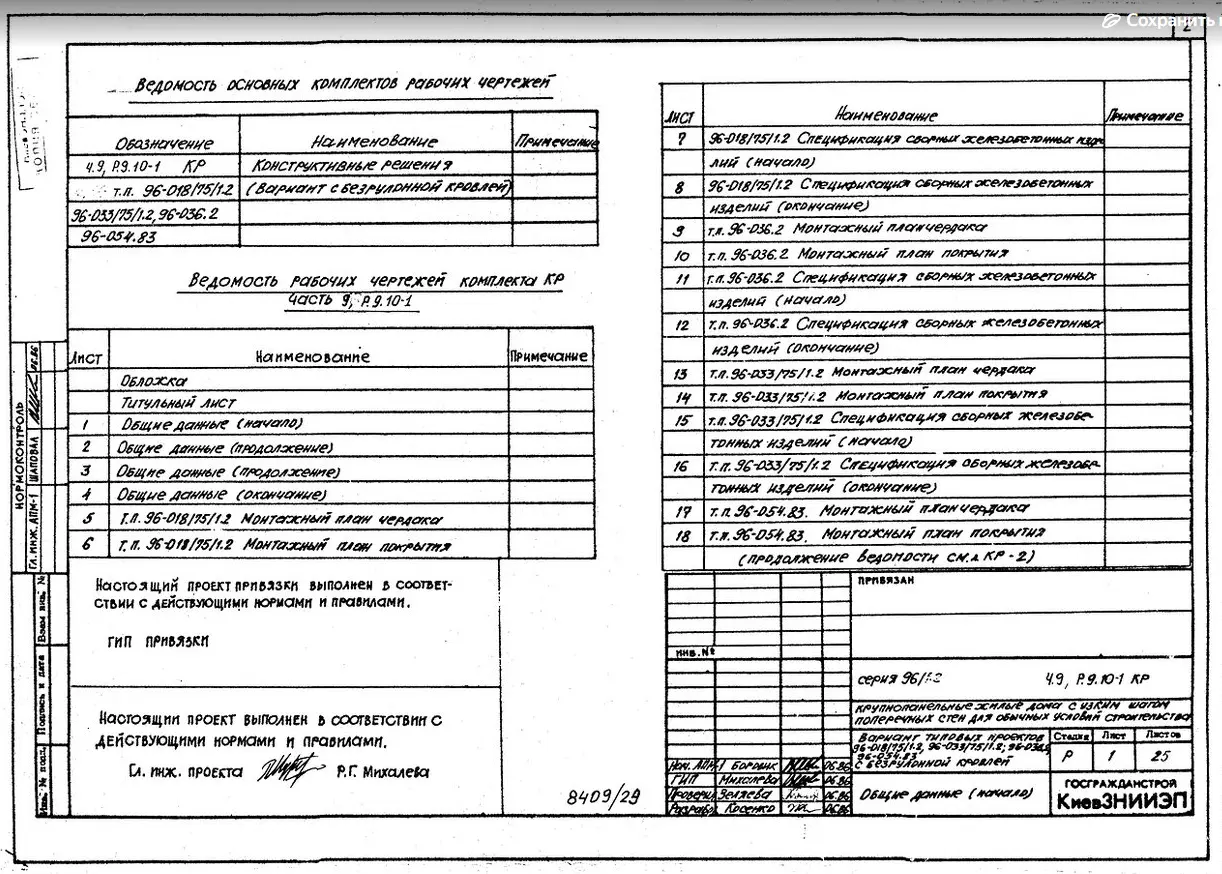 Сохранить
2
Ведомость основных комплектов рабочих чертежей
Обозначение Наименование Примечание
Ч.9, Р.9.10-1 КР Конструктивные решения
т.п. 96-018/75/1.2 (Вариант с безрулонной кровлей)
96-033/75/1.2, 96-036.2
96-054.83
Ведомость рабочих чертежей комплекта КР
часть 9, Р.9.10-1
Лист Наименование Примечание
Обложка
Титульный лист
1 Общие данные (начало)
2 Общие данные (продолжение)
3 Общие данные (продолжение)
4 Общие данные (окончание)
5 Т.п. 96-018/75/1.2 Монтажный план чердака
6 т.п. 96-018/75/1.2 Монтажный план покрытия
Настоящий проект привязки выполнен в соответ-
ствии с действующими нормами и правилами.
ГИП привязки
Настоящий проект выполнен в соответствии с
действующими нормами и правилами.
Гл. инж. проекта Р.Г. Михалева
8409/29
Лист Наименование Примечание
7 96-018/75/1.2 Спецификация сборных железобетонных изде-
лий (начало)
8 96-018/75/1.2 Спецификация сборных железобетонных
изделий (окончание)
9 т.п. 96-036.2 Монтажный план чердака
10 т.п. 96-036.2 Монтажный план покрытия
11 т.п. 96-036.2 Спецификация сборных железобетонных
изделий (начало)
12 т.п. 96-036.2 Спецификация сборных железобетонных
изделий (окончание)
13 т.п. 96-033/75/1.2 Монтажный план чердака
14 т.п. 96-033/75/1.2 Монтажный план покрытия
15 т.п. 96-033/75/1.2 Спецификация сборных железобе-
тонных изделий (начало)
16 т.п. 96-033/75/1.2 Спецификация сборных железобе-
тонных изделий (окончание)
17 т.п. 96-054.83. Монтажный план чердака
18 т.п. 96-054.83. Монтажный план покрытия
(продолжение ведомости см.л КР-2)
Привязан
инв. №
серия 96/1.2 Ч.9, Р.9.10-1 КР
Крупнопанельные жилые дома с узким шагом
поперечных стен для обычных условий строительства
Вариант типовых проектов
96-018/75/1.2, 96-033/75/1.2; 96-036.2
96-054.83
с безрулонной кровлей
Стадия Лист Листов
Р 1 25
Нач. АПМ-1 Боровик 06.86
ГИП Михалева 06.86
Проверил Зеляева 06.86
Разраб. Косенко 06.86
Общие данные (начало)
ГОСГРАЖДАНСТРОЙ
КиевЗНИИЭП
Нормоконтроль
Гл. инж. АПМ-1 Шаповал 06.86
Взам. инв. №
Подпись и дата
Инв. № подл.